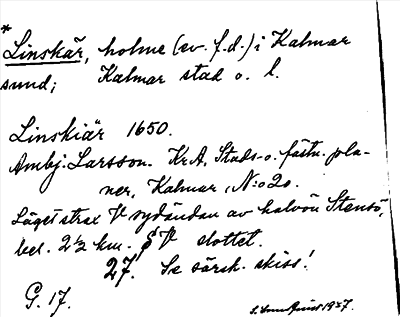 *
Linskär, holme (ev. f.d.) i Kalmar
sund; Kalmar stad o. l.
Linskiär 1650.
Ambj. Larsson. Kr.A. Stads- o. fästn. pla-
ner, Kalmar, N:o 20.
Läget strax V sydändan av halvön Stensö,
bel. 2½ km. SV slottet.
27. Se särsk. skiss!
G. 17.
1937.